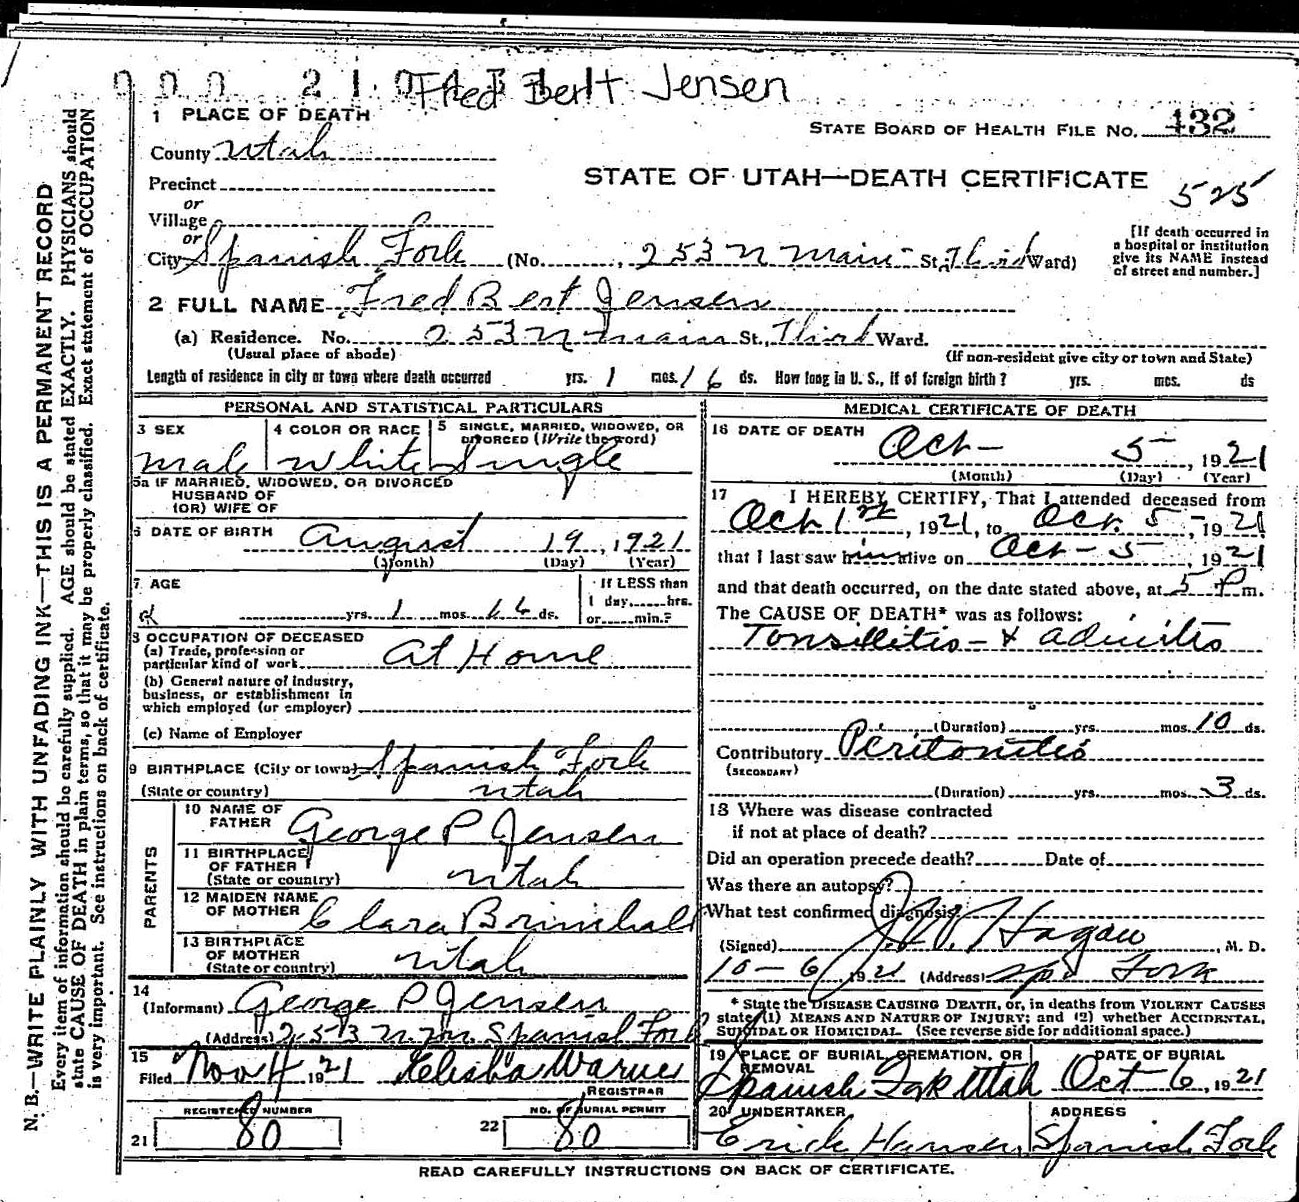 Fred Bert Jensen
1 PLACE OF DEATH
STATE BOARD OF HEALTH FILE No. 432
County Utah
STATE OF UTAH—DEATH CERTIFICATE 525
Precinct
or
Village
or
City Spanish Fork (No. , 253 N Main St., Third Ward)
[If death occurred in
a hospital or institution
give its NAME instead
of street and number.]
2 FULL NAME Fred Bert Jensen
(a) Residence. No. 253 N Main St., Third Ward.
(Usual place of abode)
(If non-resident give city or town and State)
Length of residence in city or town where death occurred yrs. 1 mos. 16 ds. How long in U. S., if of foreign birth? yrs. mos. ds
PERSONAL AND STATISTICAL PARTICULARS
3 SEX
4 COLOR OR RACE
5 SINGLE, MARRIED, WIDOWED, OR
DIVORCED (Write the word)
Male White Single
5a IF MARRIED, WIDOWED, OR DIVORCED
HUSBAND OF
(OR) WIFE OF
6 DATE OF BIRTH August 19, 1921
(Month) (Day) (Year)
7 AGE
yrs. 1 mos. ds.
If LESS than
1 day, hrs.
or min.?
8 OCCUPATION OF DECEASED
(a) Trade, profession or
particular kind of work At Home
(b) General nature of Industry,
business, or establishment in
which employed (or employer)
(c) Name of Employer
9 BIRTHPLACE (City or town) Spanish Fork
(State or country) Utah
PARENTS
10 NAME OF
FATHER George P Jensen
11 BIRTHPLACE
OF FATHER
(State or country) Utah
12 MAIDEN NAME
OF MOTHER Clara Brimhall
13 BIRTHPLACE
OF MOTHER
(State or country) Utah
14
(Informant) George P Jensen
(Address) 253 N. M. Spanish Fork
15
Filed Nov 4 1921 Elisha Warner
REGISTRAR
REGISTERED NUMBER
21 80
NO. OF BURIAL PERMIT
22 80
MEDICAL CERTIFICATE OF DEATH
16 DATE OF DEATH Oct- 5, 1921
(Month) (Day) (Year)
17 I HEREBY CERTIFY, That I attended deceased from
Oct 1st, 1921, to Oct. 5-, 1921
that I last saw him alive on Oct- 5, 1921
and that death occurred, on the date stated above, at 5 P m.
The CAUSE OF DEATH* was as follows:
Tonsillitis- &
(Duration) yrs. mos. 10 ds.
Contributory Peritonitis
(SECONDARY)
(Duration) yrs. mos. 3 ds.
18 Where was disease contracted
if not at place of death?
Did an operation precede death? Date of
Was there an autopsy?
What test confirmed diagnosis
(Signed) J. W. Hagan, M. D.
10-6, 1921 (Address) Sp. Fork
* State the DISEASE CAUSING DEATH, or, in deaths from VIOLENT CAUSES
state (1) MEANS AND NATURE OF INJURY; and (2) whether ACCIDENTAL,
SUICIDAL OR HOMICIDAL. (See reverse side for additional space.)
19 PLACE OF BURIAL, CREMATION, OR
REMOVAL
DATE OF BURIAL
Spanish Fork Utah Oct- 6, 1921
20 UNDERTAKER
ADDRESS
Erick Hansen Spanish Fork
READ CAREFULLY INSTRUCTIONS ON BACK OF CERTIFICATE.
N. B.—WRITE PLAINLY WITH UNFADING INK—THIS IS A PERMANENT RECORD
Every item of information should be carefully supplied. AGE should be stated EXACTLY. PHYSICIANS should
state CAUSE OF DEATH in plain terms, so that it may be properly classified. Exact statement of OCCUPATION
is very important. See instructions on back of certificate.